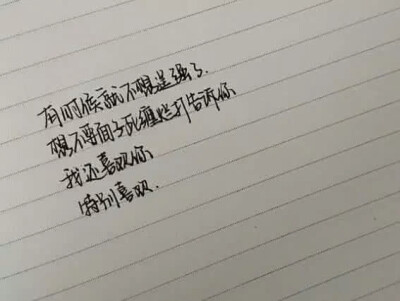 有时候就不想逞强了.
想不要面子死缠烂打告诉你
我还喜欢你
特别喜欢.